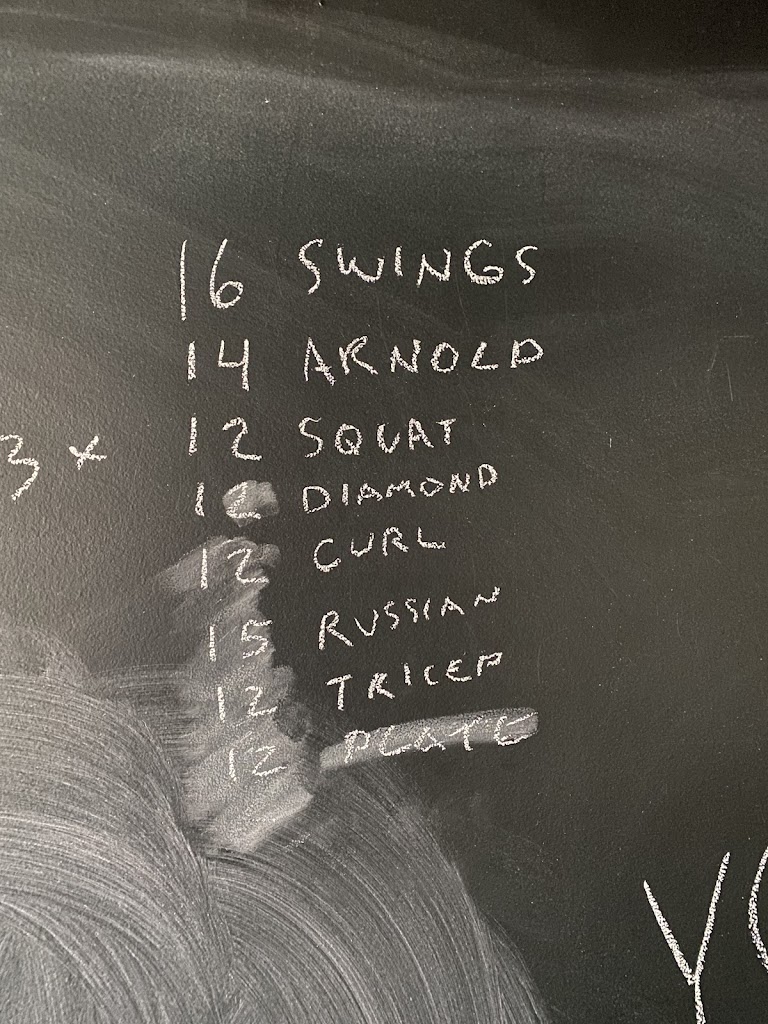 16 SWINGS
14 ARNOLD
3 × 12 SQUAT
12 DIAMOND
12 CURL
15 RUSSIAN
12 TRICEP
12 PLATE